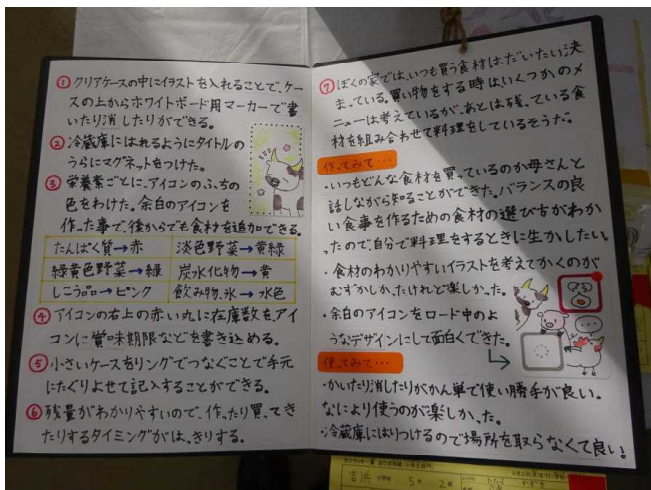 ① クリアケースの中にイラストを入れることで、ケー
スの上からホワイトボード用マーカーで書
いたり消したりができる。
② 冷蔵庫にはれるようにタイトルの
うらにマグネットをつけた。
③ 栄養素ごとに、アイコンのふちの
色をわけた。余白のアイコンを
作った事で、後からでも食材を追加できる。
たんぱく質→赤 淡色野菜→黄緑
緑黄色野菜→緑 炭水化物→黄
しこう品→ピンク 飲み物、氷→水色
④ アイコンの右上の赤い丸に在庫数を、アイ
コンに賞味期限などを書き込める。
⑤ 小さいケースをリングでつなぐことで手元
にたぐりよせて記入することができる。
⑥ 残量がわかりやすいので、作ったり買ってき
たりするタイミングがはっきりする。
⑦ ぼくの家では、いつも買う食材はだいたい決
まっている。買い物をする時は、いくつかのメ
ニューは考えているが、あとは残っている食
材を組み合わせて料理をしているそうだ。
作ってみて…
・いつもどんな食材を買っているのか母さんと
話しながら知ることができた。バランスの良
い食事を作るための食材の選び方がわか
ったので自分で料理をするときに生かしたい。
・食材のわかりやすいイラストを考えてかくのが
むずかしかったけれど楽しかった。
・余白のアイコンをロード中のよ
うなデザインにして面白くできた。
使ってみて…
・かいたり消したりがかん単で使い勝手が良い。
なにより使うのが楽しかった。
・冷蔵庫にはりつけるので場所を取らなくて良い!